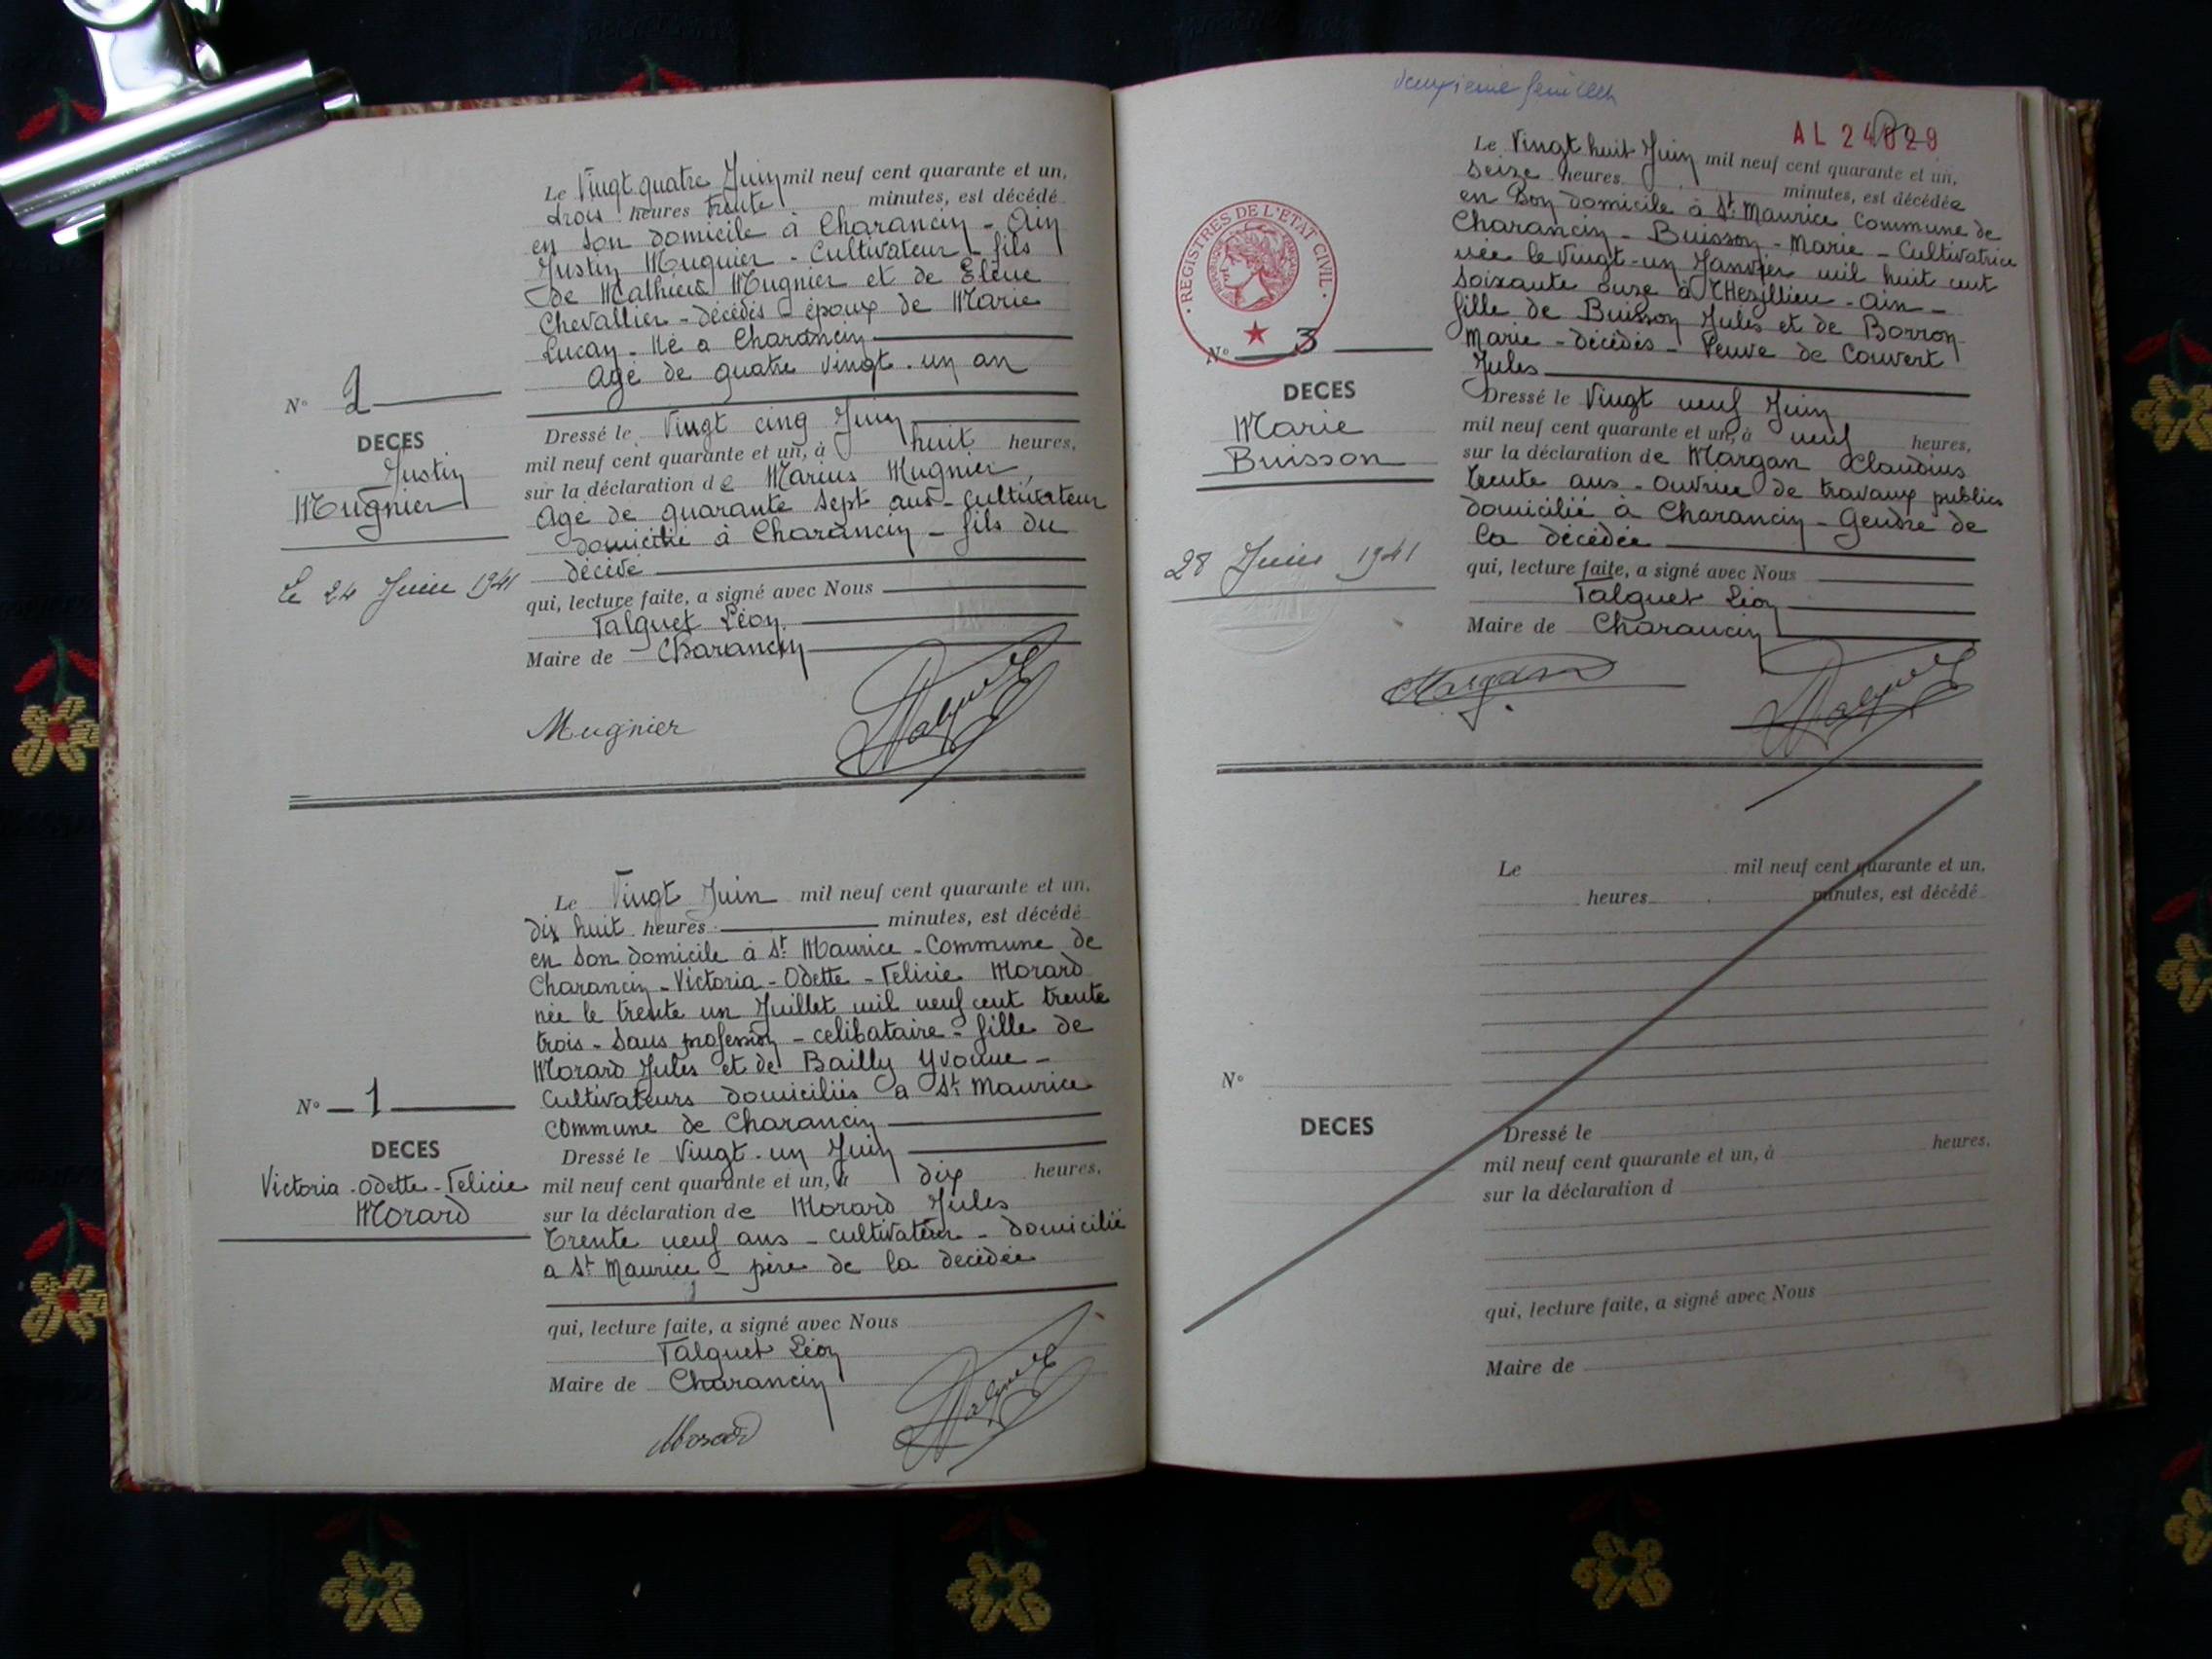 Le Vingt quatre Juin mil neuf cent quarante et un,
trois heures trente minutes, est décédé
en son domicile à Charancin - Ain
Justin Mugnier - Cultivateur - fils
de Mathieu Mugnier et de Elène
Chevallier - décédés - époux de Marie
Lucay - Né a Charancin
Agé de quatre vingt - un an
N° 2
DECES
Justin
Mugnier
Le 24 Juin 1941
Dressé le Vingt cinq Juin
mil neuf cent quarante et un, à huit heures,
sur la déclaration de Marius Mugnier,
Agé de quarante sept ans - cultivateur
domicilié à Charancin - fils du
décédé
qui, lecture faite, a signé avec Nous
Talguet Léon
Maire de Charancin
Mugnier
Talguet
Le Vingt Juin mil neuf cent quarante et un,
dix huit heures minutes, est décédé
en son domicile à St Maurice - Commune de
Charancin - Victoria - Odette - Felicie Morard
née le trente un Juillet mil neuf cent trente
trois - Sans profession - celibataire - fille de
Morard Jules et de Bailly Yvonne -
Cultivateurs domiciliés a St Maurice
Commune de Charancin
N° 1
DECES
Victoria - Odette - Felicie
Morard
Dressé le Vingt - un Juin
mil neuf cent quarante et un, à dix heures,
sur la déclaration de Morard Jules
Trente neuf ans - cultivateur - domicilié
a St Maurice - père de la décédée
qui, lecture faite, a signé avec Nous
Talguet Léon
Maire de Charancin
Morard
Talguet
deuxième
AL 24029
Le Vingt huit Juin mil neuf cent quarante et un,
seize heures minutes, est décédée
en Son domicile à St Maurice Commune de
Charancin - Buisson - Marie - Cultivatrice
née le Vingt - un Janvier mil huit cent
soixante onze à Thézillieu - Ain -
fille de Buisson Jules et de Borron
Marie - décédés - Veuve de Couvert
Jules
REGISTRES DE L'ETAT CIVIL
N° 3
DECES
Marie
Buisson
28 Juin 1941
Dressé le Vingt neuf Juin
mil neuf cent quarante et un, à neuf heures,
sur la déclaration de Margan Claudius
trente ans - ouvrier de travaux publics
domicilié à Charancin - Gendre de
la décédée
qui, lecture faite, a signé avec Nous
Talguet Léon
Maire de Charancin
Margan
Talguet
Le mil neuf cent quarante et un,
heures minutes, est décédé
N°
DECES
Dressé le
mil neuf cent quarante et un, à heures,
sur la déclaration d
qui, lecture faite, a signé avec Nous
Maire de